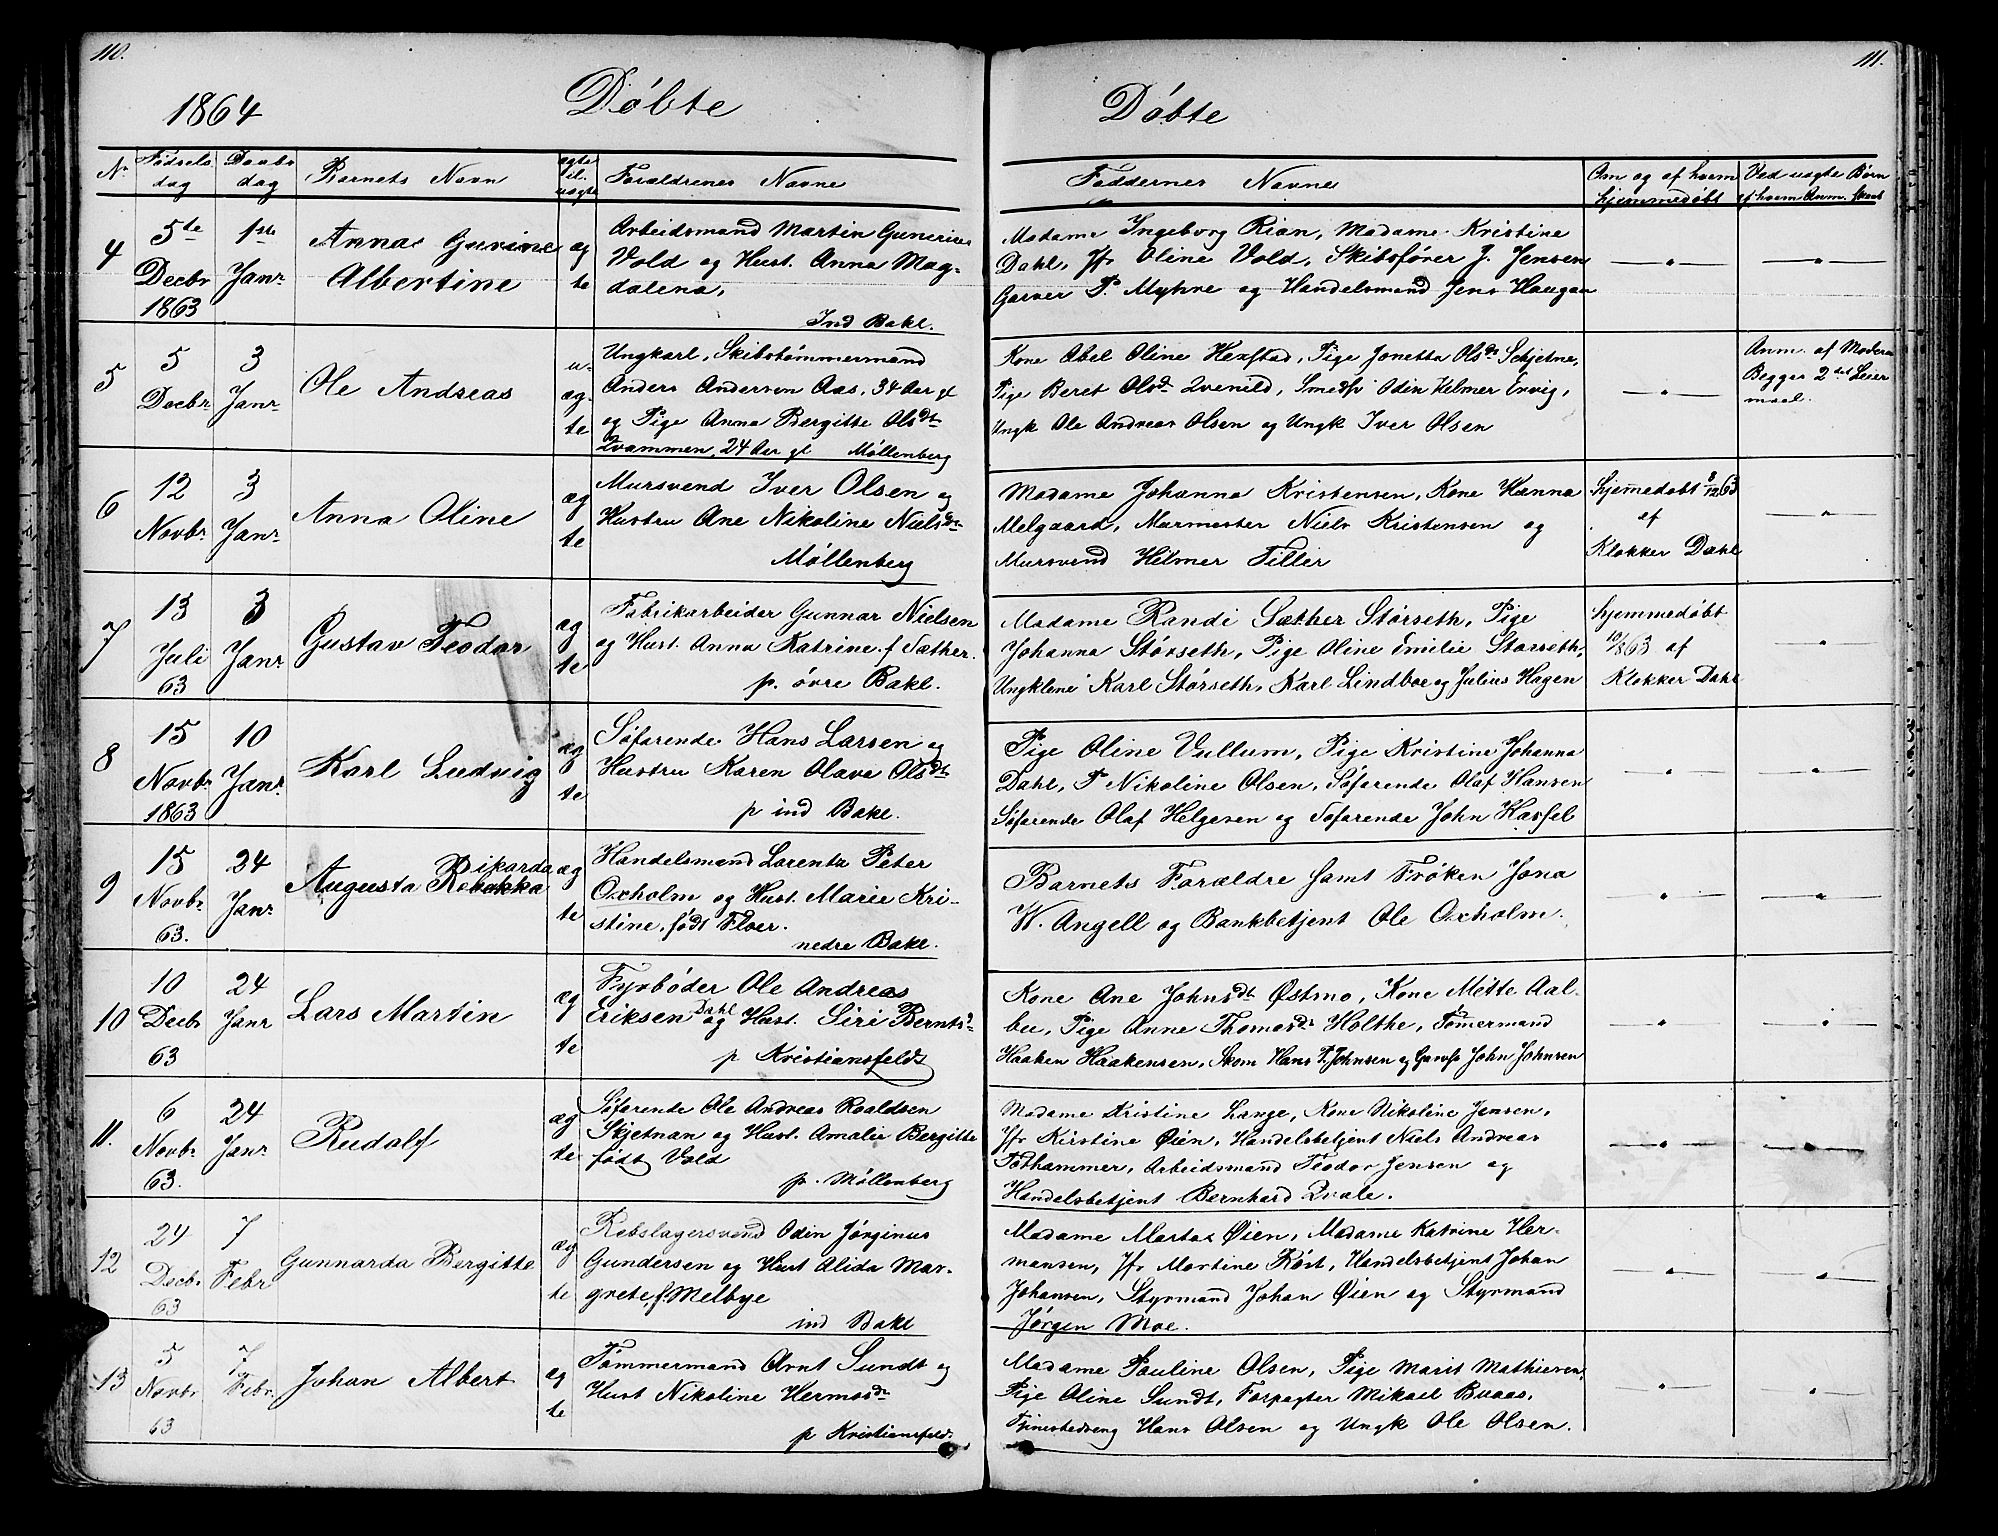 110.
1864 Döbte
N. Fødsels dag Daabs dag Barnets Navn ægte el. uægte Forældrenes Navne
4 5te Decbr 1863 1ste Janr Anna Gurine Albertine ægte
Arbeidsmand Martin Gunerius
Vold og Hust. Anna Mag-
dalena,
Ind Bakl.
5 5 Decbr 3 Janr Ole Andreas uægte
Ungkarl, Skibstømmermand
Anders Andersen Aas, 34 Aar gl
og Pige Anna Bergitte Olsdt
Qvammen, 24 Aar gl Møllenberg
6 12 Novbr 3 Janr Anna Oline ægte
Mursvend Iver Olsen og
Hustru Ane Nikoline Nielsdtr
Møllenberg
7 13 Juli 63 3 Janr Gustav Teodor ægte
Fabrikarbeider Gunnar Nielsen
og Hust. Anna Katrine f. Sæther
p. øvre Bakl.
8 15 Novbr 1863 10 Janr Karl Ludvig ægte
Søfarende Hans Larsen og
Hustru Karen Olava Olsdt
p ind Bakl.
9 15 Novbr 63. 24 Janr Augusta Rikarda Rebekka ægte
Handelsmand Lorentz Peter
Oxholm og Hust. Marie Kri-
stine, født Floer.
nedre Bakl.
10 10 Decbr 63 24 Janr Lars Martin ægte
Fyrbøder Ole Andreas
Eriksen Dahl og Hust. Siri Berntsd-
p Kristiansfeldt
11. 6 Novbr 63. 24 Janr Rudolf ægte
Søfarende Ole Andreas Roaldsen
Skjetnan og Hust. Amalie Bergitte
født Vold
p. Møllenberg
12 24 Decbr 63 7 Febr Gunnarda Bergitte ægte
Rebslagersvend Odin Jørginus
Gundersen og Hust Alida Mar-
grete f Melbye
ind Bakl
13 5 Novbr 63 7 Febr. Johan Albert ægte
Tømmermand Arnt Sundt og
Hust Nikoline Hermosdr
p Kristiansfeldt
111.
Döbte
Faddernes Navne Om og af hvem hjemmedøbt Ved uægte Børn af hvem Anm. skeet
Madame Ingeborg Rian, Madame Kristine
Dahl, Jfr Oline Vold, Skibsfører J. Jensen
Garver P. Myhre og Handelsmand Jens Haugan
Kone Abel Oline Hexstad, Pige Jonetta Olsdr Schjetne,
Pige Beret Olsdr Qvenild, Smedsv Odin Helmer Ervig,
Ungk Ole Andreas Olsen og Ungk Iver Olsen
Anm. af Moderen
Begges 2det Leier
maal.
Madame Johanna Kristensen, Kone Hanna
Melgaard, Murmester Niels Kristensen og
Mursvend Hilmer Tiller
Hjemmedøbt 8/12 63
af
Klokker Dahl
Madame Randi Sæther Størseth, Pige
Johanna Størseth, Pige Oline Emilie Størseth,
Ungklene Karl Størseth, Karl Lindboe og Julius Hagen
Hjemmedøbt
10/8 63 af
Klokker Dahl
Pige Oline Vullum, Pige Kristine Johanna
Dahl, P Nikoline Olsen, Søfarende Olaf Hansen
Søfarende Olaf Helgesen og Søfarende John Hassel
Barnets Forældre samt Frøken Jona
W. Angell og Bankbetjent Ole Oxholm.
Kone Ane Johnsdt Østmo, Kone Mette Aal-
bu, Pige Anne Thomasdr Holthe, Tømermand
Haaken Haakensen, Skom Hans P. Johnsen og Garvsv John Johnsen
Madame Kristine Lange, Kone Nikoline Jensen,
Jfr Kirstine Øien, Handelsbetjent Niels Andreas
Tothammer, Arbeidsmand Teodor Jensen og
Handelsbetjent Bernhard Qvale.
Madame Marta Øien, Madame Katrine Her-
mansen, Jfr Martine Röst, Handelsbetjent Johan
Johansen, Styrmand Johan Øien og Styrmand
Jørgen Moe.
Madame Pauline Olsen, Pige Marit Mathiesen,
Pige Oline Sundt, Forpagter Mikael Buaas,
Tjenestedreng Hans Olsen og Ungk Ole Olsen.